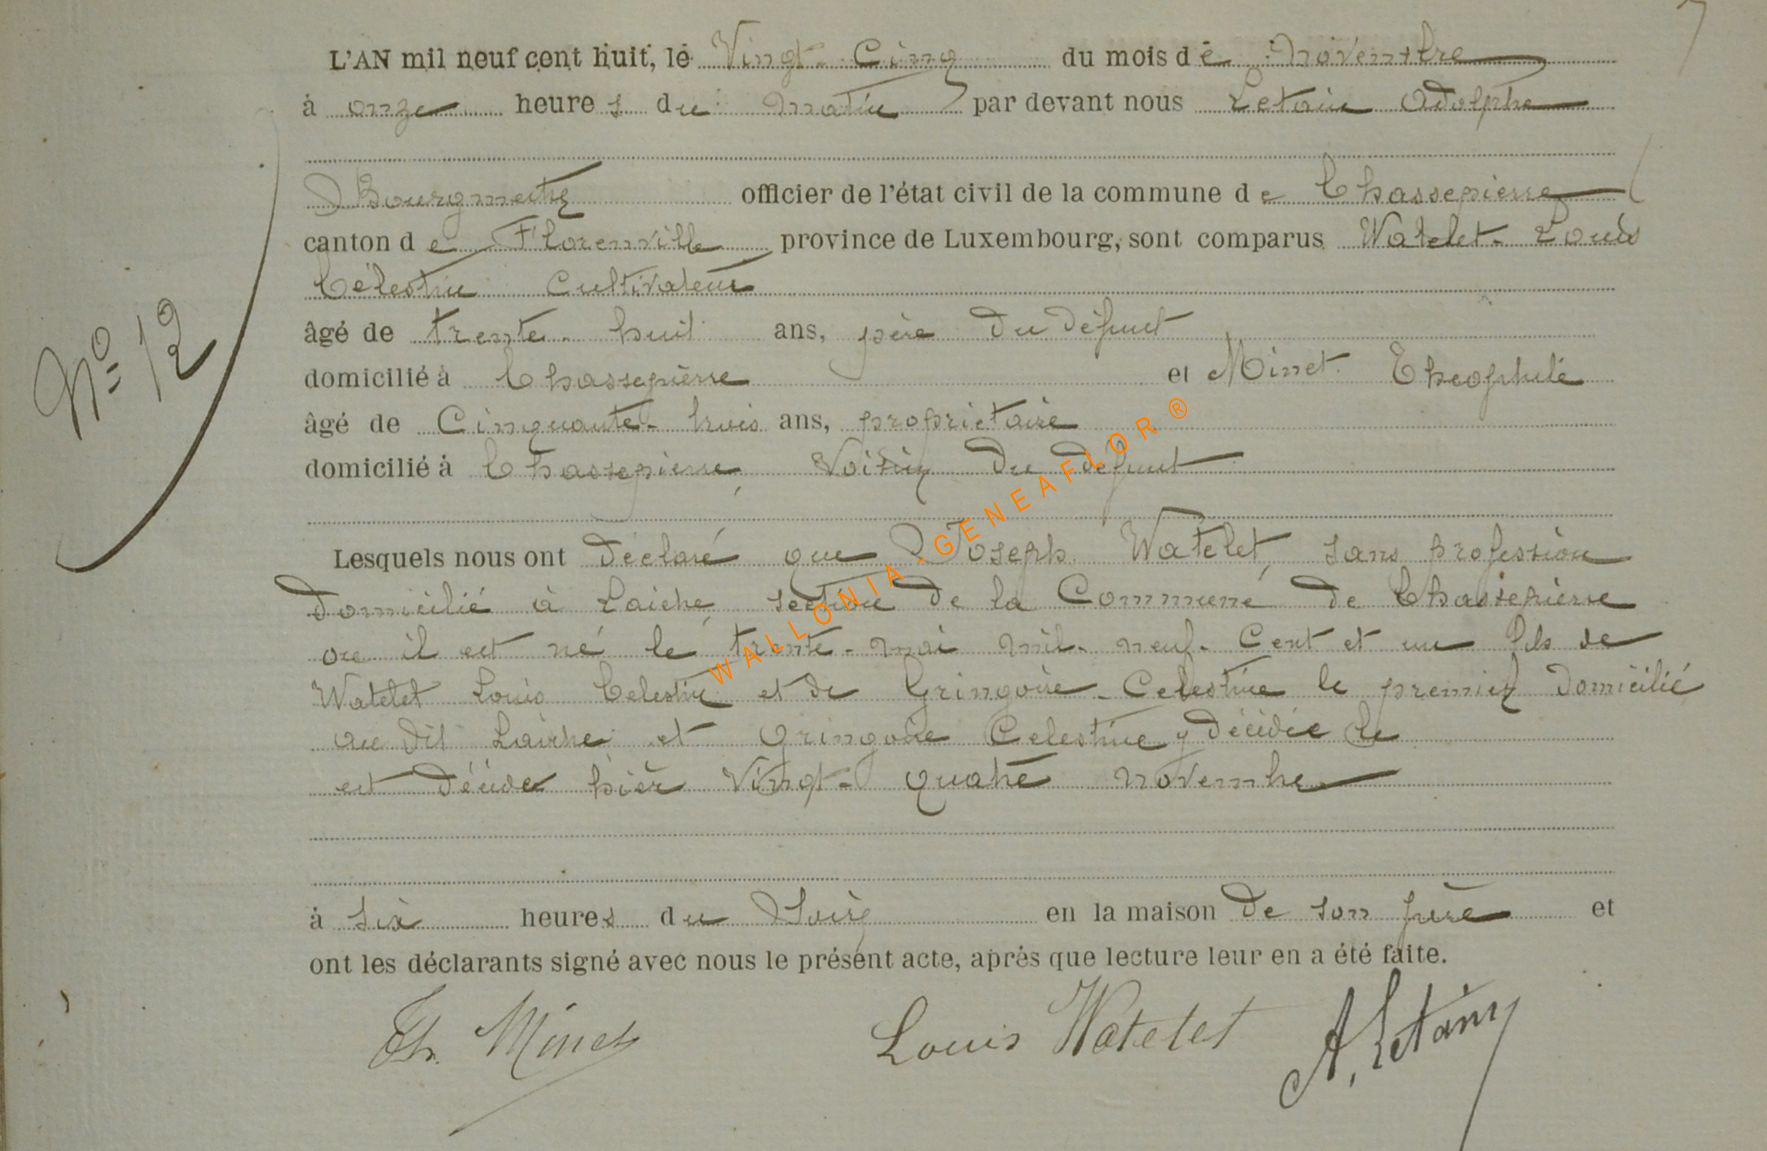 L'AN mil neuf cent huit, le Vingt-Cinq du mois de novembre
à onze heures du matin par devant nous Letain Adolphe
Bourgmestre officier de l'état civil de la commune de Chassepierre
canton de Florenville province de Luxembourg, sont comparus Watelet Louis
Célestin Cultivateur
âgé de trente-huit ans, père du défunt
domicilié à Chassepierre et Minet Théophile
âgé de Cinquante-trois ans, propriétaire
domicilié à Chassepierre, Voisin du défunt
Lesquels nous ont déclaré que Joseph Watelet, sans profession
domicilié à Laiche, section de la Commune de Chassepierre
ou il est né le trente-mai mil-neuf-Cent et un fils de
Watelet Louis Celestin et de Gringoire-Celestine le premier domicilié
au dit Laiche et Gringoire Celestine y décédée
est décédé hier Vingt-quatre novembre
à six heures du Soir en la maison de son père et
ont les déclarants signé avec nous le présent acte, après que lecture leur en a été faite.
Th. Minet Louis Watelet A. Letain
No 12
WALLONIA-GENEAFLOR®